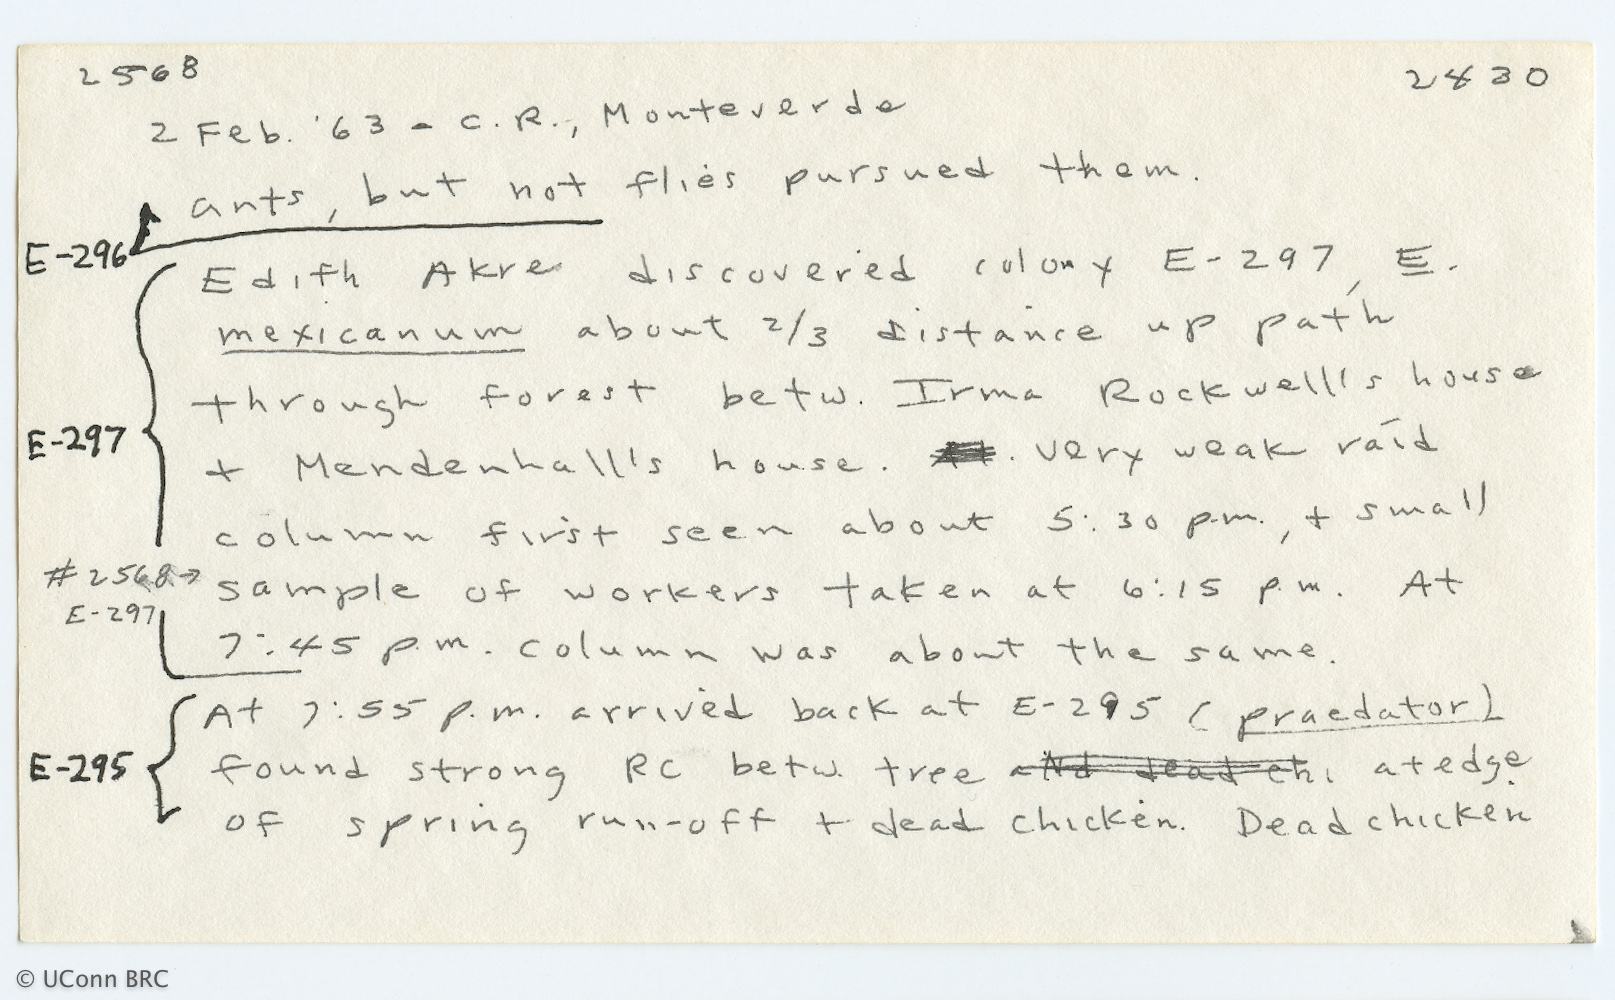 2568
2430
2 Feb. '63 - C.R., Monteverde
ants, but not flies pursued them.
E-296
Edith Akre discovered colony E-297, E.
mexicanum about 2/3 distance up path
through forest betw. Irma Rockwell's house
E-297
+ Mendenhall's house. very weak raid
column first seen about 5:30 p.m., + small
#2568→ sample of workers taken at 6:15 p.m. At
E-297
7:45 p.m. column was about the same.
At 7:55 p.m. arrived back at E-295 (praedator)
E-295
found strong RC betw. tree and dead chi at edge
of spring run-off + dead chicken. Dead chicken
© UConn BRC